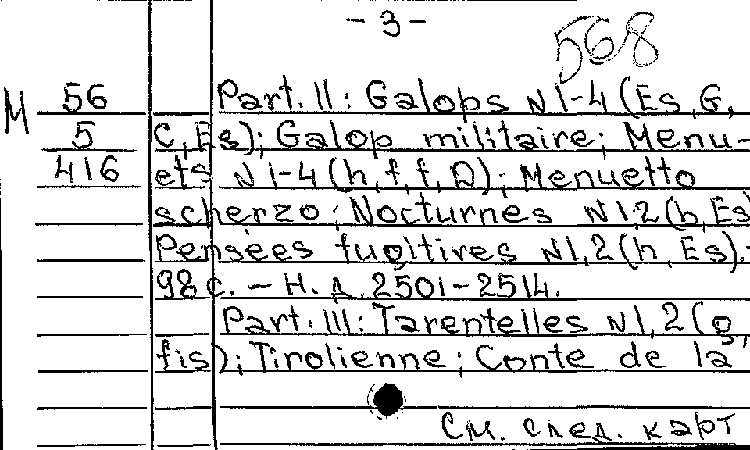 - 3 -
568
M 56 Part. II: Galops N 1-4 (Es, G,
5 C, Es); Galop militaire; Menu-
416 ets N 1-4 (h, f, f, D); Menuetto
scherzo; Nocturnes N 1,2 (h, Es)
Pensées fugitires N1,2 (h, Es).-
98 с. - Н. д. 2501-2514.
Part. III: Tarentelles N1,2 (g
fis); Tirolienne; Conte de la
См. след. карт